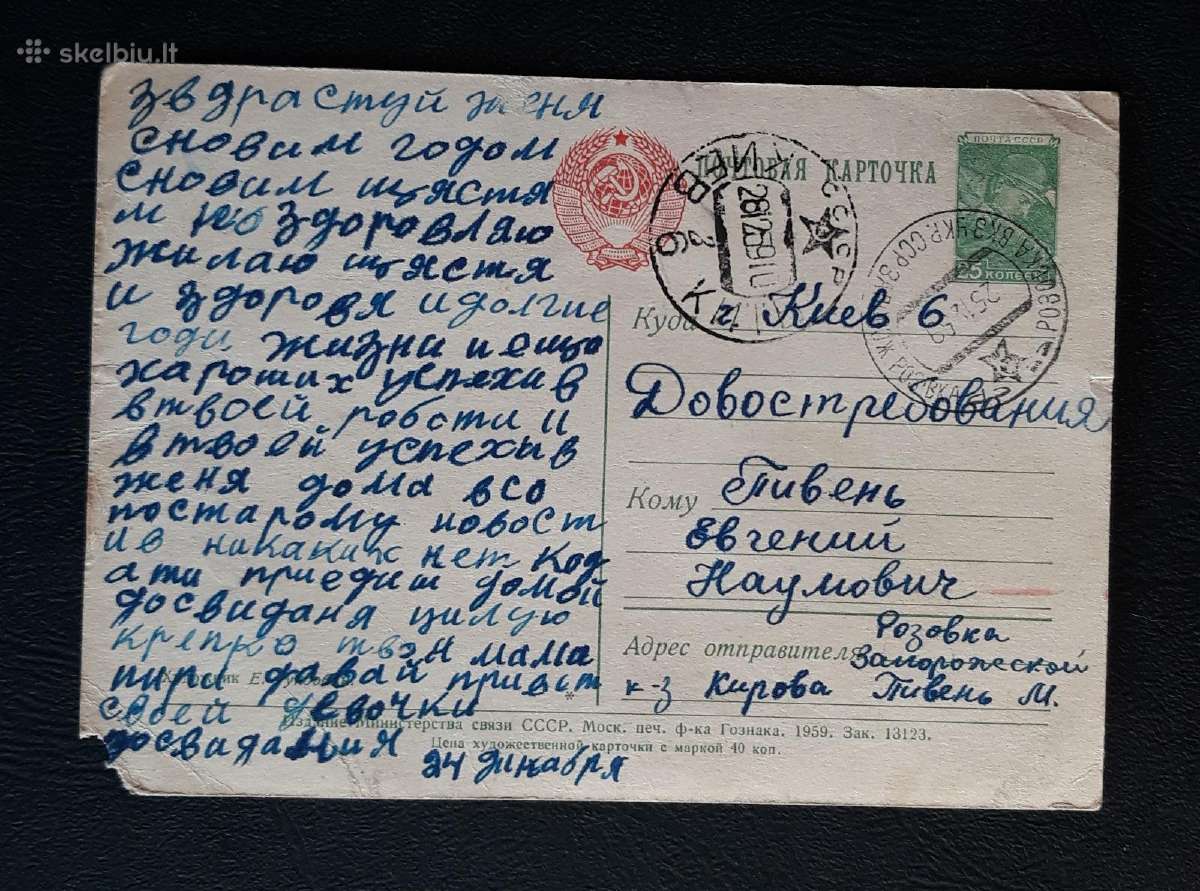 skelbiu.lt
Звдрастуй женя
сновим годом
сновим щястя
м поздоровляю
жилаю щястя
и здоровя идолгие
годи жизни иещо
хароших успехив
втвоей роботи и
втвоей успехив
женя дома всо
постарому новост
ив никаких нет Код
ати приедиш домой
досвиданя цилую
крепко твоя мама
пири давай привет
своей девочки
досвидания
24 декабря
ПОЧТОВАЯ КАРТОЧКА
ПОЧТА СССР
25 КОПЕЕК
КИЕВ 6
СССР
281259 10
Куда г. Киев 6
Довостребования
Кому Пивень
Евгений
Наумович
Адрес отправителя Розовка
Запорожеской
к-з Кирова Пивень М.
Издание Министерства связи СССР. Моск. печ. ф-ка Гознака. 1959. Зак. 13123.
Цена художественной карточки с маркой 40 коп.